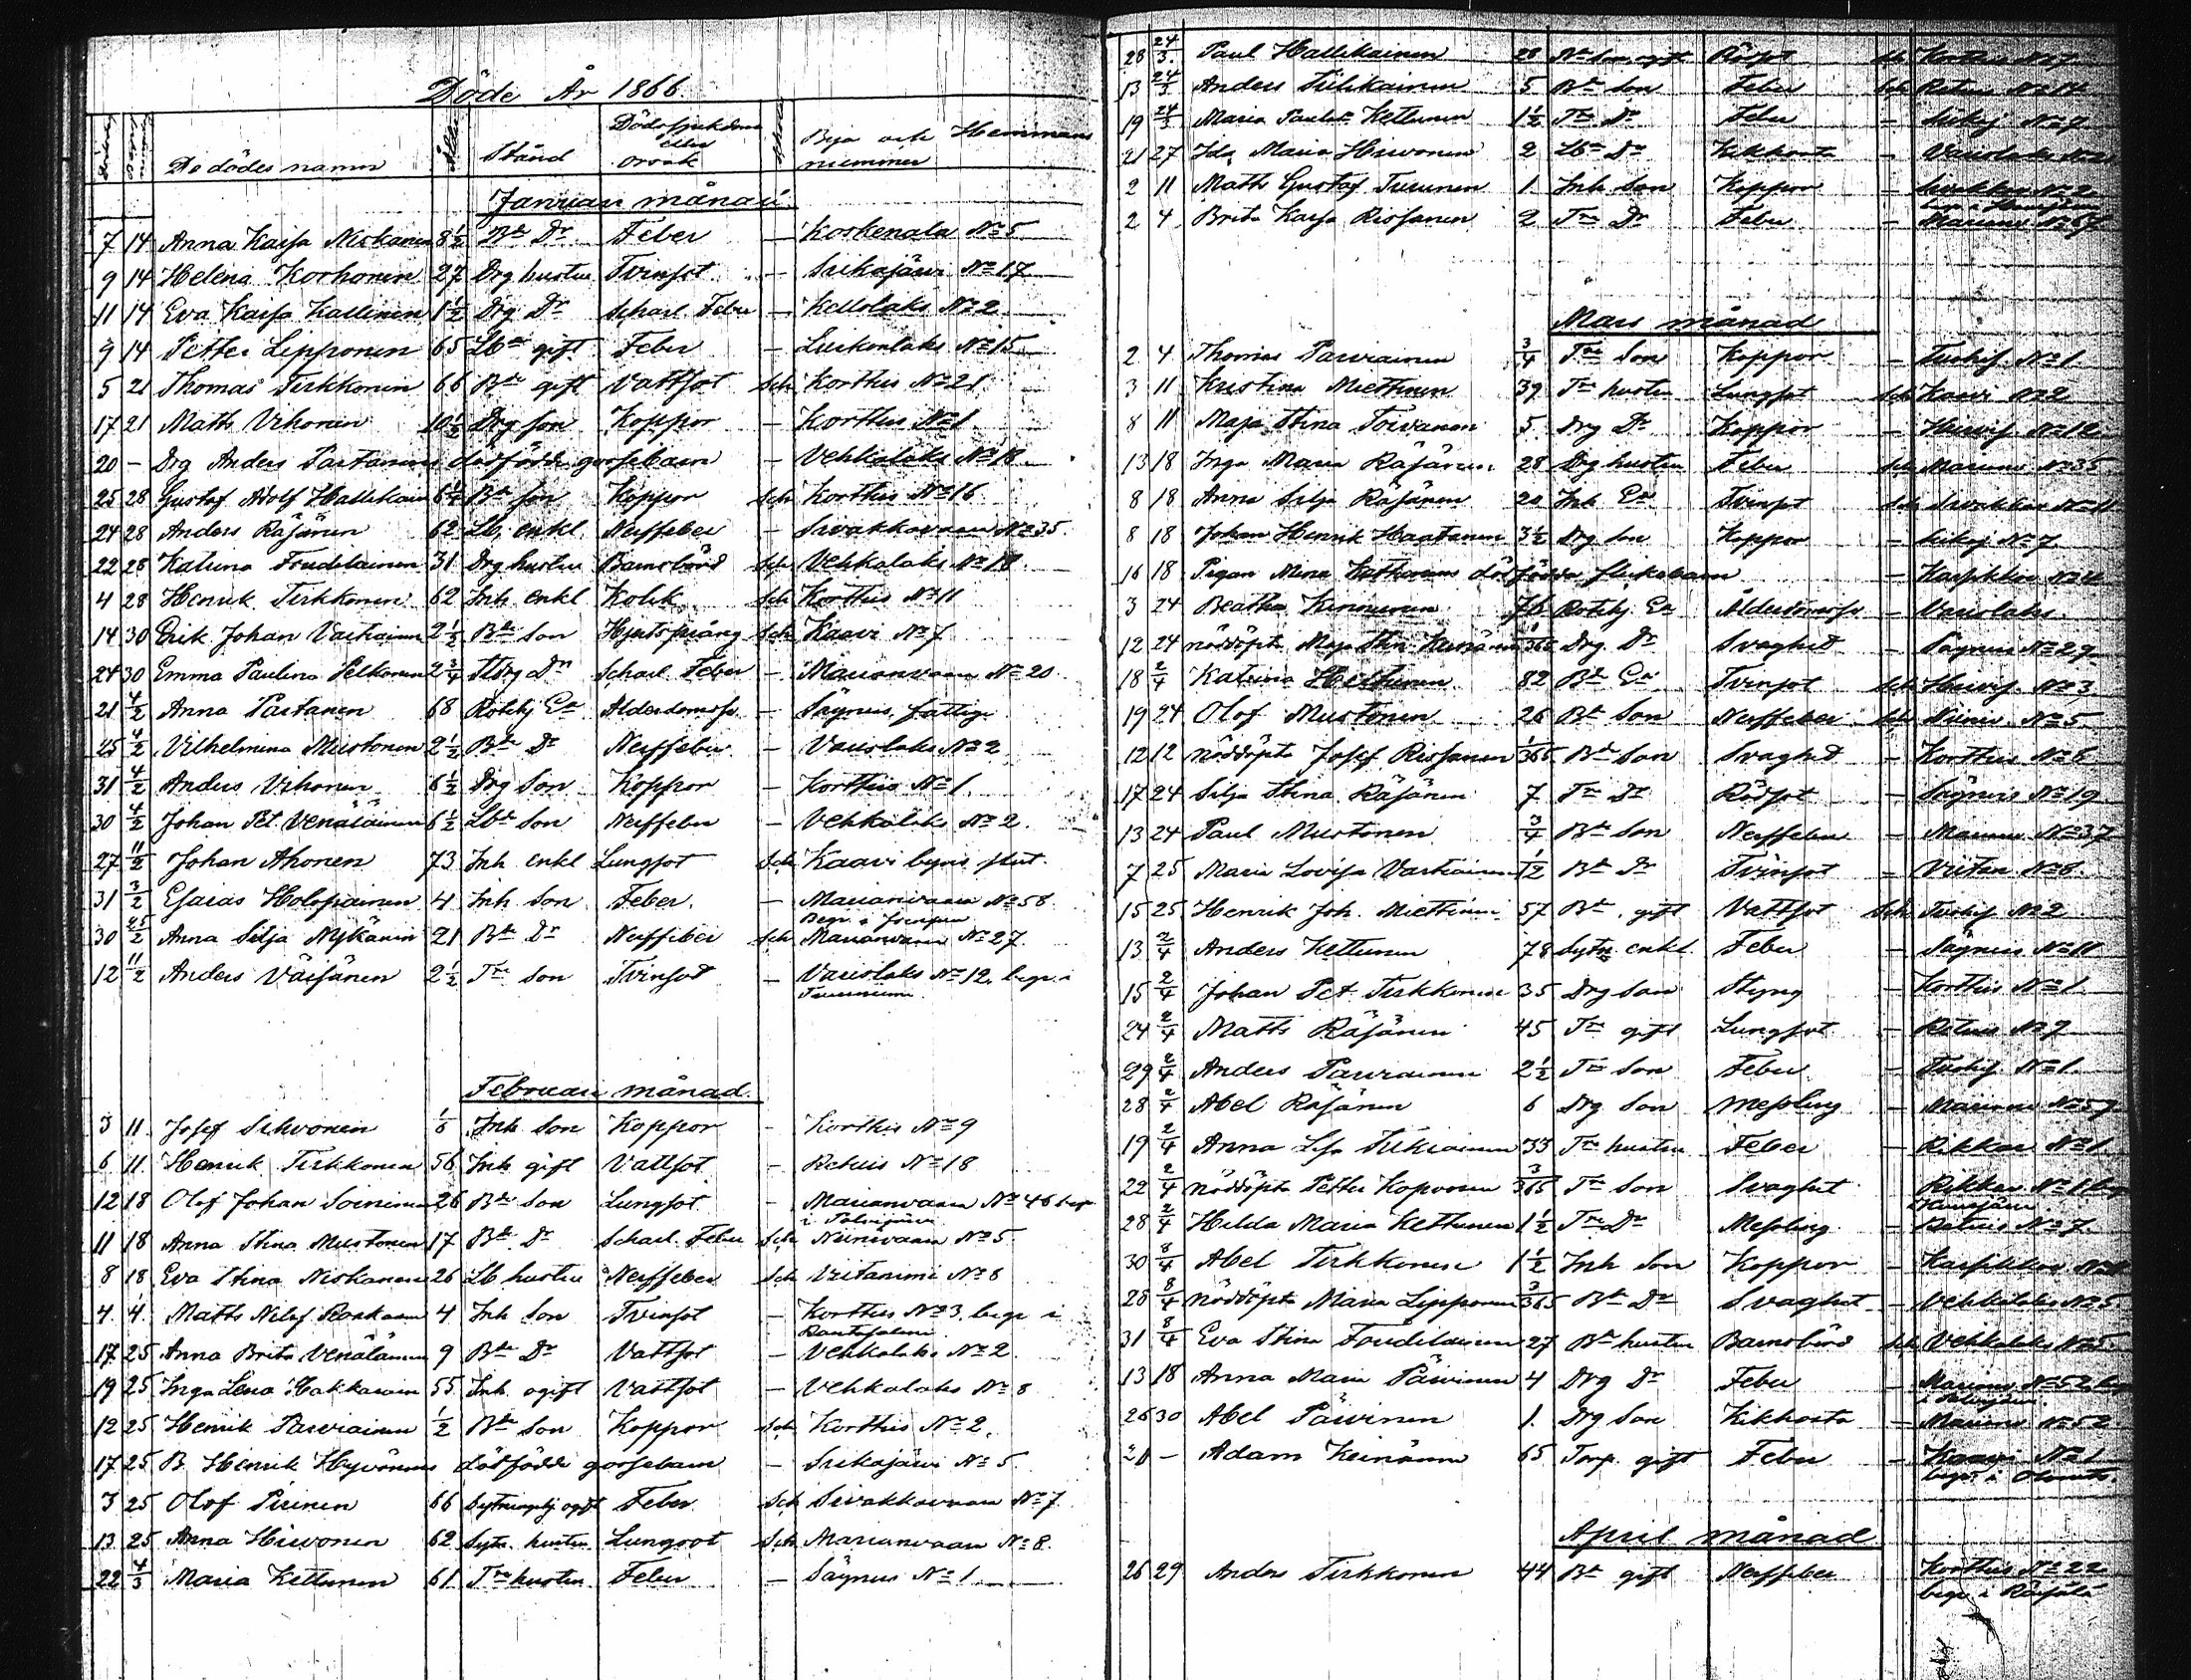 Döde År 1866.
De dödes namn Ålder Stånd Dödssjukdom eller orsak Byn och Hemmans nummer
Januari månad
7 14 Anna Kaisa Niskanen 8½ Bde Dr Feber — Koskenala No 5
9 14 Helena Korhonen 27 Drg hustru Tvinsot — Siikajärvi No 17
11 14 Eva Kaisa Kallinen 1½ Drg Dr Scharl. Feber — Kellolaks No 2
9 14 Petter Lipponen 65 Lbde gift Feber — No 15
5 21 Thomas Tirkkonen 66 Bde gift Vattsot Sch Korthis No 21
17 21 Matts Urhonen 10½ Drg son Koppor — Korthis No 1
20 — Drg Anders Partanens dödfödde gossebarn — Vehkalaks No 18
25 28 Gustaf Adolf Hallikain 6¼ Bde son Koppor Sch Korthis No 16
24 28 Anders Räsänen 62 Lb, enkl. Nerffeber — Sivakkavaara No 35
22 28 Katrina Toudelainen 31 Drg hustru Barnsbörd Sch Vehkalaks No 18
4 28 Henrik Tirkkonen 62 Inh enkl Kolik Sch Korthis No 11
14 30 Erik Johan Vartiainen 2½ Bde Son Hjertsprång Sch Kaavi No 7
24 30 Emma Paulina Pelkonen 2¾ Dr Scharl. Feber — Marianvaara No 20
21 4/2 Anna Partanen 68 Rothj Ea Alderdomssv — Säyneis fattige
25 4/2 Vilhelmina Mustonen 2½ Bde Dr Nerffeber — Vaaslaks No 2
31 4/2 Anders Urhonen 6½ Drg Son Koppor — Korthis No 1
30 4/2 Johan Pet. Venäläinen 6½ Lbde son Nerffeber — Vehkalaks No 2
27 11/2 Johan Ahonen 73 Inh enkl Lungsot Sch Kaavi byns
31 3/2 Esaias Holopainen 4 Inh son Feber — Marianvaara No 58
Begr. i
30 25/2 Anna Silja Nykänen 21 Bde Dr Nerffeber Sch Marianvaara No 27
12 11/2 Anders Väisänen 2½ Trs son Tvinsot — Vaaslaks No 12, begr. i
Tuusniemi
Februari månad
3 11 Josef Sihvonen Inh. Son Koppor — Korthis No 9
6 11 Henrik Tirkkonen 56 Inh gift Vattsot — Retuis No 18
12 18 Olof Johan Soininen 26 Bde son Lungsot — Marianvaara No 46 begr
i Polvijärvi
11 18 Anna Stina Mustonen 17 Bde Dr Scharl. Feber Sch Niinivaara No 5
8 18 Eva Stina Niskanen 26 Lb hustru Nerffeber Sch Viitaniemi No 8
4 4 Matts Nilsf. 4 Inh Son Tvinsot — Korthis No 3, begr i
Rantasalmi
17 25 Anna Brita Venäläinen 9 Bde Dr Vattsot — Vehkalaks No 2
19 25 Inga Lena Hakkarain 55 Inh. ogift Vattsot — Vehkalaks No 8
12 25 Henrik Parviainen ½ Bde Son Koppor Sch Korthis No 2
17 25 B. Henrik Hyvönens dödfödde gossebarn — Siikajärvi No 5
3 25 Olof Pirinen 66 Sytningshj ogift Feber Sch Sivakkavaara No 7
13 25 Anna Hirvonen 62 Sytn. hustru Lungsot Sch Marianvaara No 8
22 4/3 Maria Kettunen 61 Trs hustru Feber — Säyneis No 1
28 24/3 Paul Hallikainen 28 Bde Son, ogift Rödsot Sch Korthis No 7
13 24/3 Anders Tiilikainen 5 Bde Son Feber Sch Retuis No 14
19 24/3 Maria Paulin Kettunen 1½ Trs Dr Feber — No 7
21 27 Ida Maria Hirvonen 2 Lbde Dr Kikhosta — Vaaslaks No 2
2 11 Matts Gustaf Turunen 1 Inh Son Koppor — Sivakka No 2
2 4 Brita Kaisa Rissanen 2 Trs Dr Feber — Marianv No 67
Mars månad
2 4 Thomas Parviainen ¾ Trs Son Koppor — No 1
3 11 Kristina Miettinen 39 Trs hustru Lungsot Sch Kaavi No 2
8 11 Maja Stina Toivanen 5 Drg Dr Koppor — No 12
13 18 Inga Maria Räsänen 28 Drg hustru Feber Sch Marianv No 35
8 18 Anna Silja Räsänen 20 Inh Ea Tvinsot Sch Sivakkav No 11
8 18 Johan Henrik Haatanen 3½ Drg Son Koppor — No 7
16 18 Pigan Mina dödfödda flickebarn — No 4
3 24 Beatha Kinnunen 76 Rothj Ea Ålderdomssv — Vaaslaks
12 24 nöddöpta Maja Stin. 1/365 Drg. Dr Svaghet — Säyneis No 27
18 2/4 Katrina Hiltunen 82 Bde Ea Tvinsot Sch No 3
19 24 Olof Mustonen 26 Bde Son Nerffeber Sch Niiniv No 5
12 12 nöddöpta Josef Rissanen 1/365 Bde Son Svaghet — Korthis No 8
17 24 Silja Stina Räsänen 7 Trs Dr Rödsot — Säyneis No 19
13 24 Paul Mustonen ¾ Bde Son Nerffeber — Marianv No 37
7 25 Maria Lovisa Vartiainen ½ Bde Dr Tvinsot — Viitan No 8
15 25 Henrik Joh. Miettinen 57 Bde gift Vattsot Sch No 2
13 2/4 Anders Kettunen 78 Sytn enkl. Feber — Säyneis No 11
15 2/4 Johan Pet. Tirkkonen 35 Drg Son Styng — Korthis No 1
24 2/4 Matts Räsänen 45 Trs gift Lungsot — Retuis No 9
29 2/4 Anders Parviainen 2½ Trs Son Feber — No 1
28 2/4 Abel Räsänen 6 Drg Son Messling — Marianv No 57
19 2/4 Anna Lisa 33 Trs hustru Feber — Rikkav No 1
22 2/4 nöddöpta Petter Koponen 3/365 Trs Son Svaghet Rikkav No 1 begr
28 2/4 Hilda Maria Kettunen 1½ Trs Dr Messling — Retuis No 7
30 8/4 Abel Tirkkonen 1½ Inh Son Koppor —
28 8/4 nöddöpta Maria Lipponen 3/365 Bde Dr Svaghet — Vehkalaks No 5
31 8/4 Eva Stina Toudelainen 27 Bde hustru Barnsbörd Sch Vehkalaks No 5
13 18 Anna Maria Päivinen 4 Drg Dr Feber — Marianv No 52 begr
i Polvijärvi
26 30 Abel Päivinen 1 Drg Son Kikhosta — Marianv No 52
21 — Adam Keinänen 65 Torp. gift Feber — Kaavi No 1
begr. i
April månad
26 29 Anders Tirkkonen 44 Bde gift Nerffeber Korthis No 22
begr. i